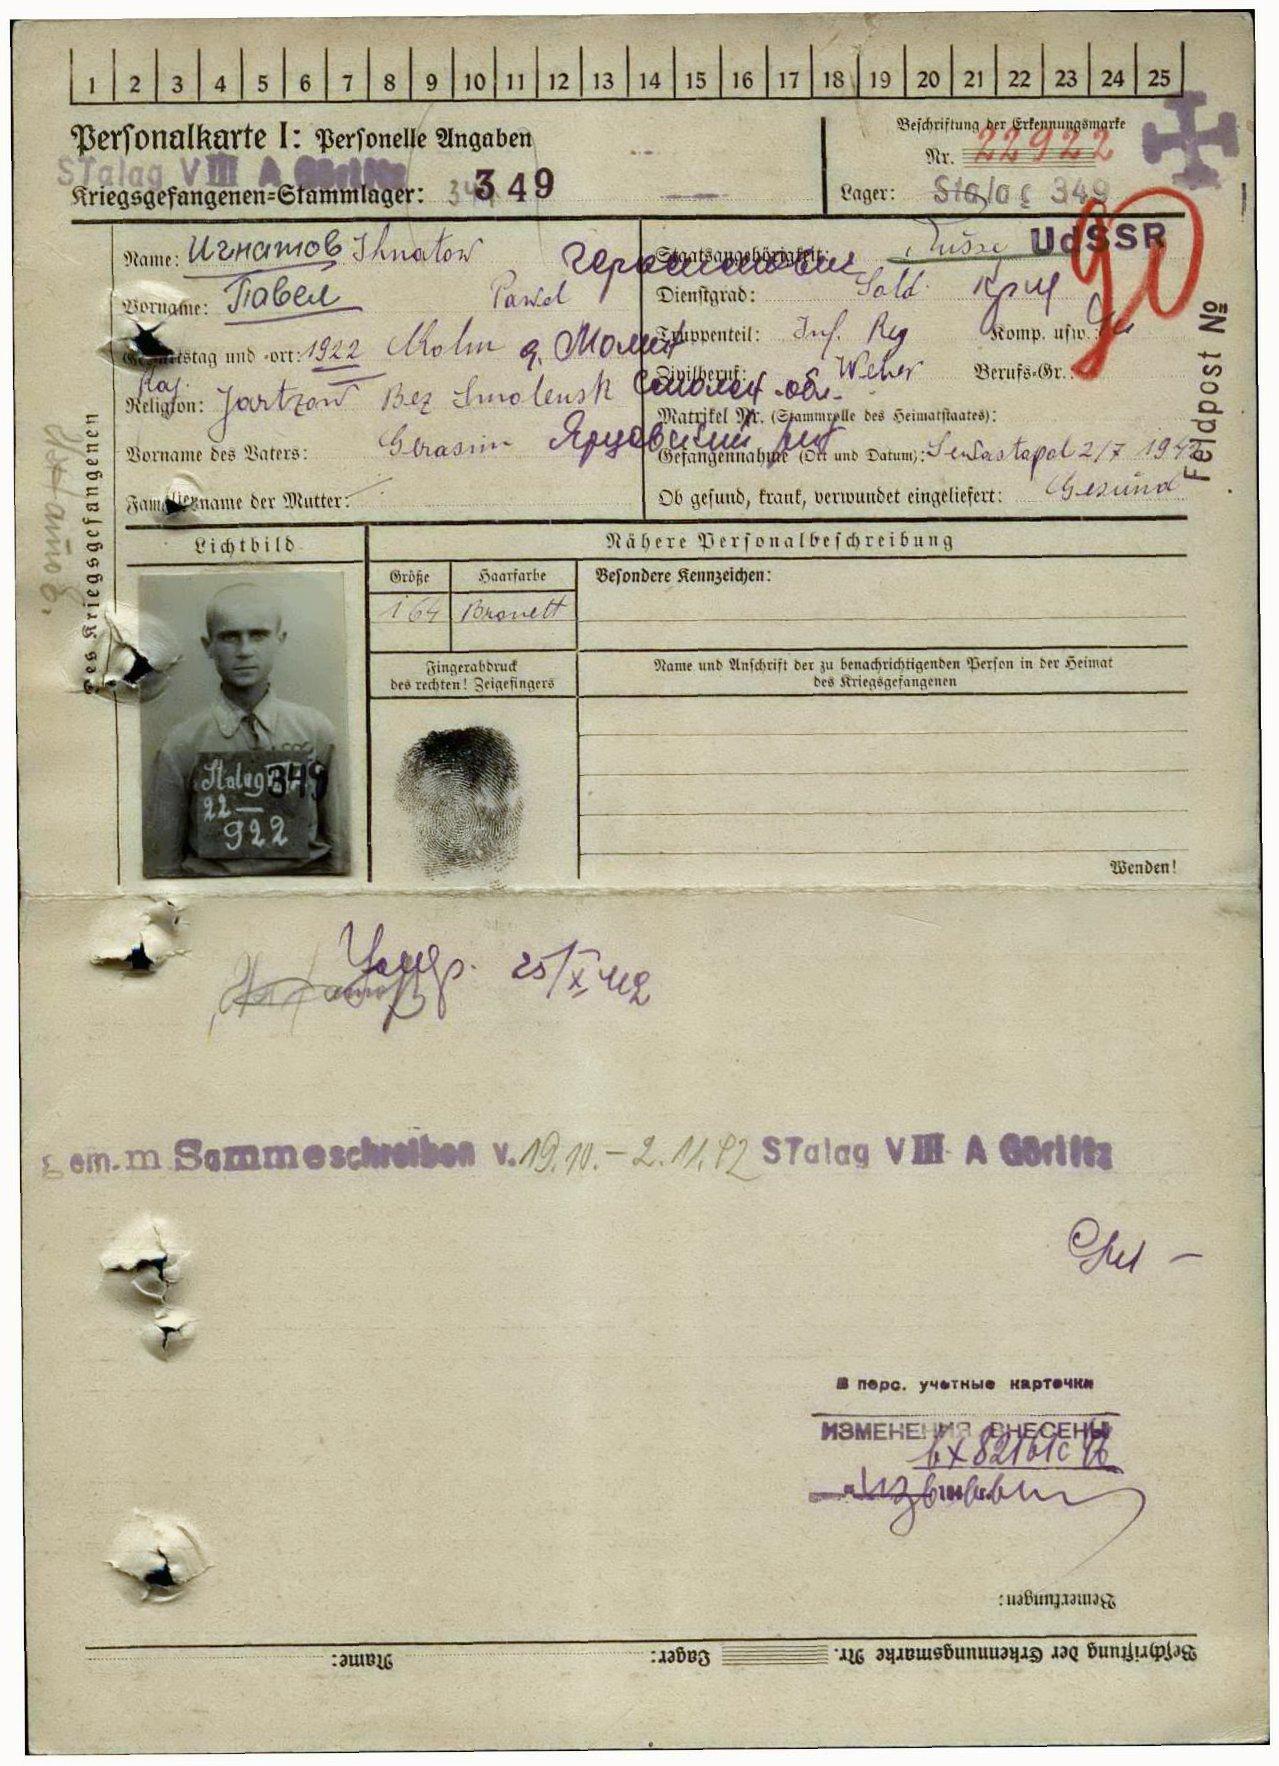 1 2 3 4 5 6 7 8 9 10 11 12 13 14 15 16 17 18 19 20 21 22 23 24 25
Personalkarte I: Personelle Angaben
STalag VIII A Görlitz
Kriegsgefangenen=Stammlager: 349
Beschriftung der Erkennungsmarke
Nr. 22922
Lager: Stalag 349
Name: Игнатов Ihnatow
Vorname: Павел Pawel
Geburtstag und -ort: 1922
Raj.
Religion: Jartzow Bez Smolensk Смолен. обл.
Vorname des Vaters: Gerasim
Familienname der Mutter:
Staatsangehörigkeit: Russe UdSSR
90
Dienstgrad: Sold.
Truppenteil: Inf. Reg Komp. usw.:
Zivilberuf: Weber Berufs-Gr.:
Matrikel Nr. (Stammrolle des Heimatstaates):
Gefangennahme (Ort und Datum): Sewastapol 2/7 1942
Ob gesund, krank, verwundet eingeliefert: Gesund
Feldpost №
Des Kriegsgefangenen
Lichtbild
Nähere Personalbeschreibung
Größe Haarfarbe Besondere Kennzeichen:
164 Bronett
Fingerabdruck
des rechten! Zeigefingers
Name und Anschrift der zu benachrichtigenden Person in der Heimat
des Kriegsgefangenen
Stalag 349
22
922
Wenden!
25/X 42
gem. m Sammeschreiben v. 19.10.-2.11.42 STalag VIII A Görlitz
В перс. учетные карточки
ИЗМЕНЕНИЯ ВНЕСЕНЫ
Bemerkungen:
Beschriftung der Erkennungsmarke Nr. Lager: Name: